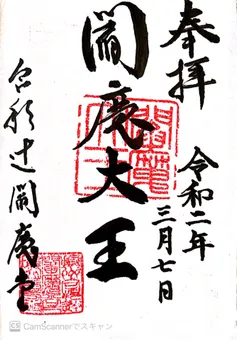 奉拝
令和二年
三月七日
閻魔大王
六道之辻閻魔堂
CS CamScannerでスキャン